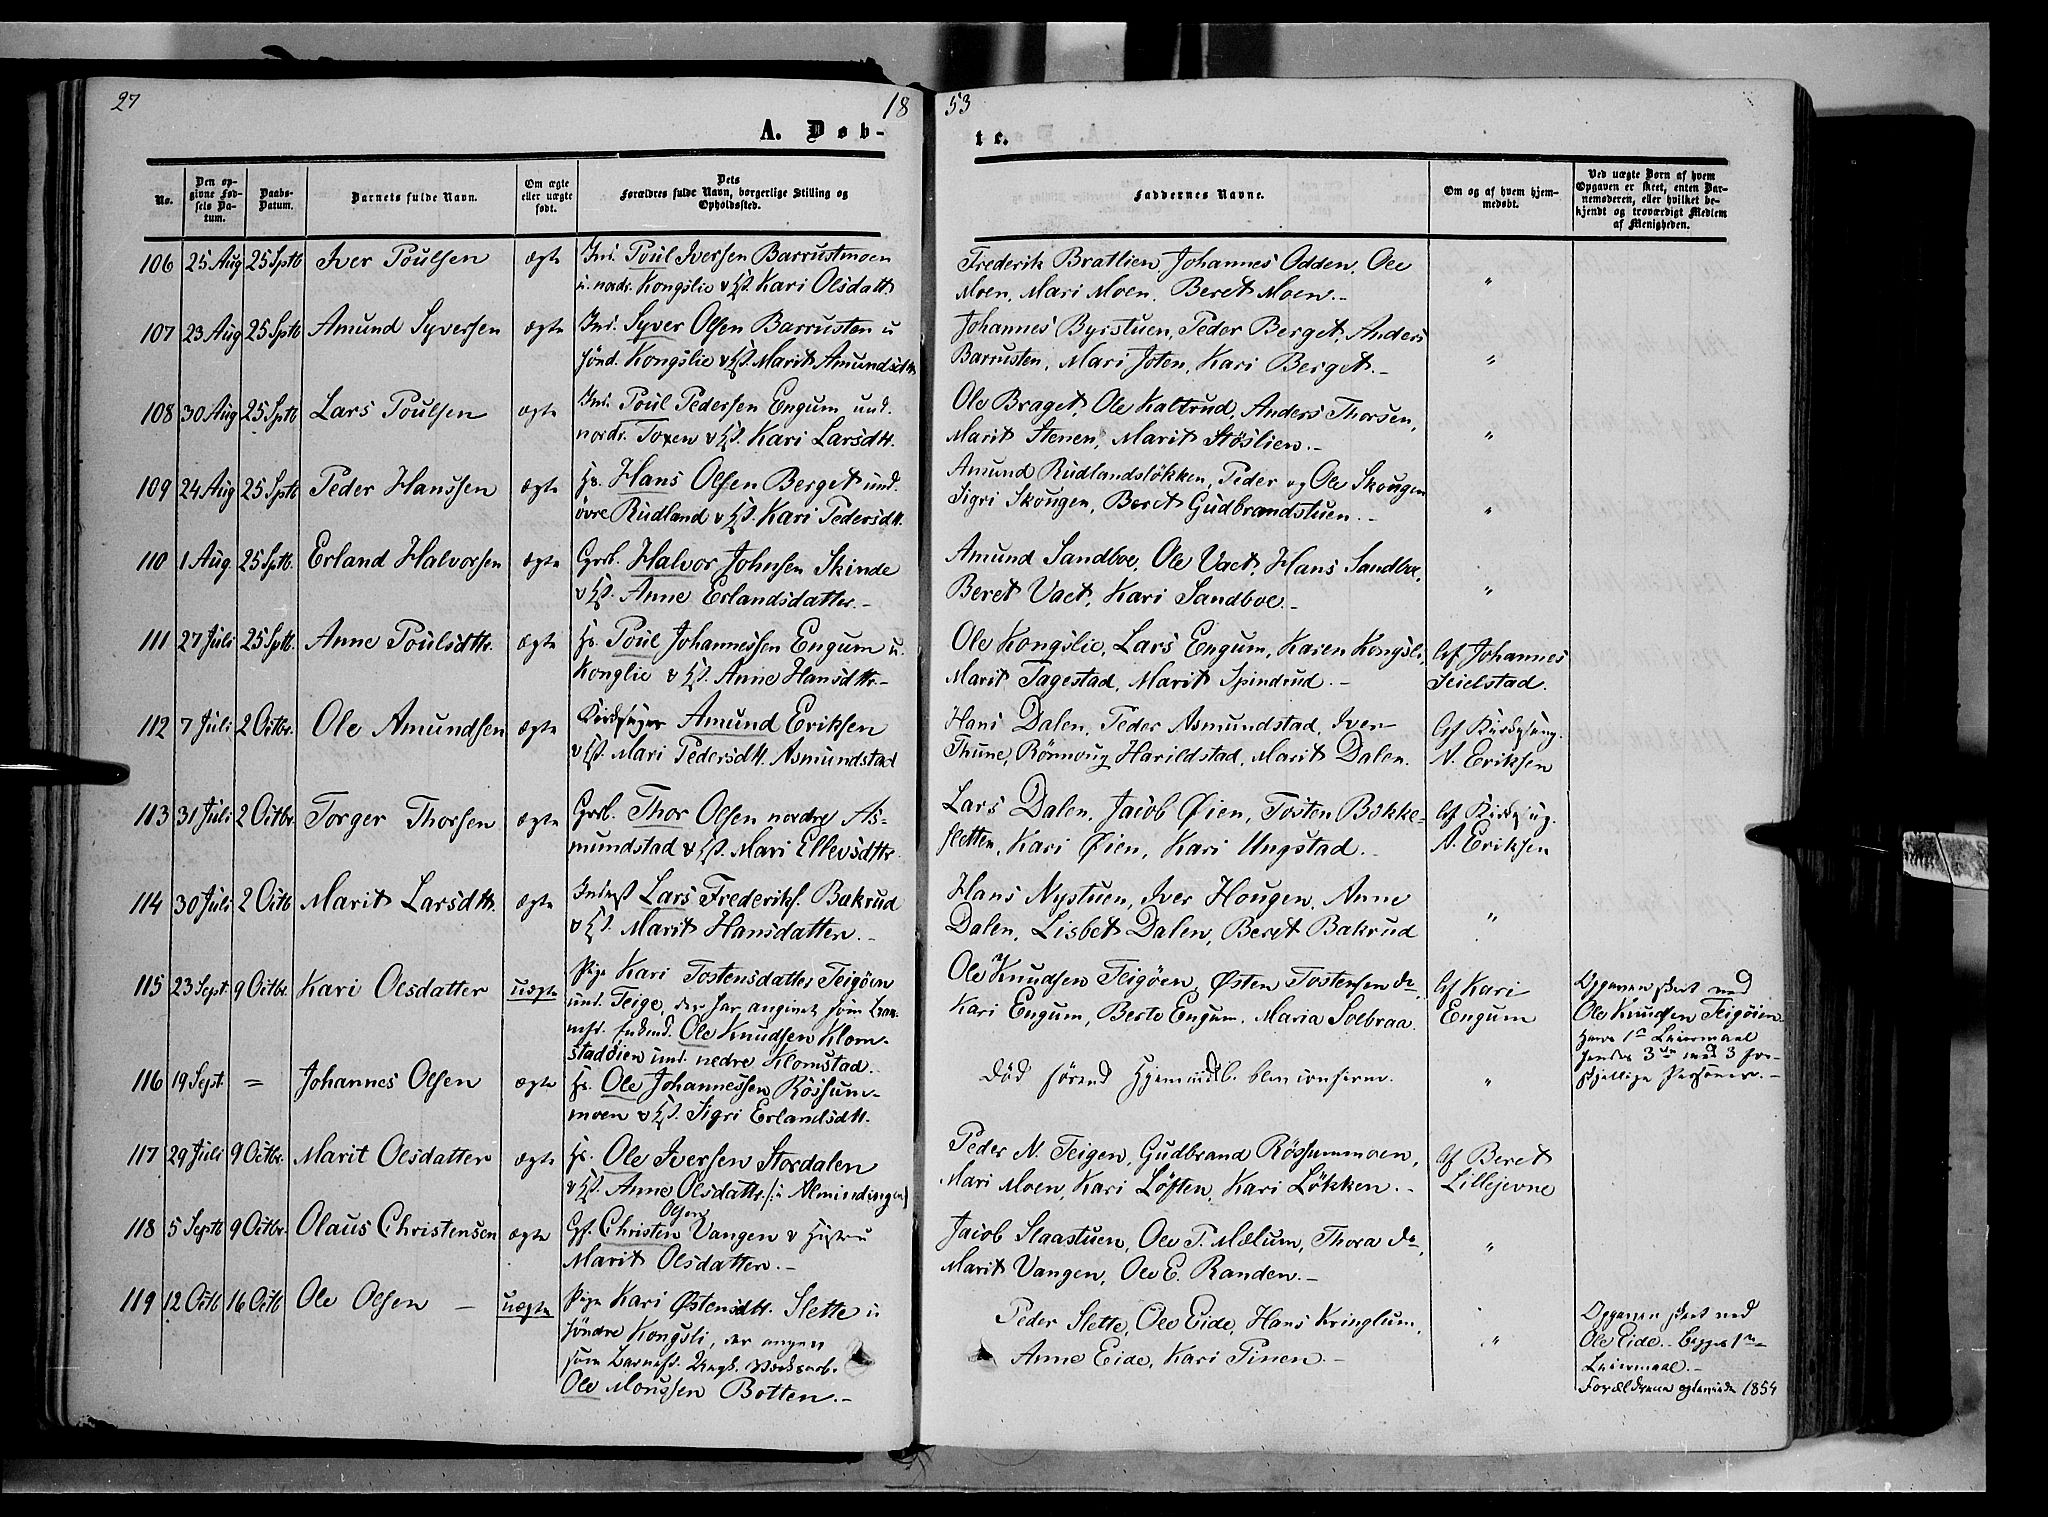 27
18
53
A. Døb-
te.
No.
Den op-
givne Fød-
sels Da-
tum.
Daabs-
Datum.
Barnets fulde Navn.
Om ægte
eller uægte
født.
Dets
Forældres fulde Navn, borgerlige Stilling og
Opholdssted.
Faddernes Navne.
Om og af hvem hjem-
medøbt.
Ved uægte Børn af hvem
Opgaven er skeet, enten Bar-
nemoderen, eller hvilket be-
kjendt og troværdigt Medlem
af Menigheden.
106 25 Aug 25 Sptb Iver Poulsen ægte Ind. Poul Iversen Barrustmoen
u. nordr. Kongslie & Hst. Kari Olsdattr
Frederik Brattlien, Johannes Odden, Ole
Moen, Mari Moen, Beret Moen.- "
107 23 Aug 25 Sptb Amund Syversen ægte Ind. Syver Olsen Barrusten u
sönd. Kongslie & Hst. Marit Amundsdtr
Johannes Byrstuen, Peder Berget, Anders
Barrusten, Mari Joten, Kari Berget.- "
108 30 Aug 25 Sptb Lars Poulsen ægte Ind. Poul Pedersen Engum und.
nordr. Toxen & Hst. Kari Larsdtr.
Ole Braget, Ole Kaltrud, Anders Thorsen,
Marit Stenen, Marit Stöslien.- "
109 24 Aug 25 Sptb Peder Hanssen ægte Hs. Hans Olsen Berget und.
övre Rudland & Hst. Kari Pedersdtr.
Amund Rudlandslökken, Peder og Ole Skougen
Sigri Skougen, Beret Gudbrandstuen.- "
110 1 Aug 25 Sptb. Erland Halvorsen ægte Grb. Halvor Johnsen Skinde
& Hst. Anne Erlandsdatter.-
Amund Sandboe, Ole Vaet, Hans Sandboe,
Beret Vaet, Kari Sandboe.- "
111 27 Juli 25 Sptb. Anne Poulsdtr. ægte Hs. Poul Johannessen Engum u.
Konglie & Hst. Anne Hansdtr.-
Ole Kongslie, Lars Engum, Karen Kongsli,
Marit Tagestad, Marit Spindrud.-
Af Johannes
Seielstad.
112 7 Juli 2 Octbr. Ole Amundsen ægte Kirkesanger Amund Eriksen
& Hst. Mari Pedersdtr. Asmundstad
Hans Dalen, Peder Asmundstad, Iver
Thune, Rönnoug Harildstad, Marit Dalen.
Af Kirkesang.
A. Eriksen
113 31 Juli 2 Octbr. Torger Thorsen ægte Grb. Thor Olsen nordre As-
mundstad & Hst. Mari Ellevsdtr.
Lars Dalen, Jacob Øien, Tosten Bække-
sletten, Kari Øien, Kari Ungstad.-
Af Kirkesug.
A. Eriksen
114 30 Juli 2 Octb Marit Larsdtr. ægte Inderst Lars Frederiks. Bakrud
& Hst. Marit Hansdatter.-
Hans Nystuen, Iver Hougen, Anne
Dalen, Lisbet Dalen, Beret Bakrud "
115 23 Sept. 9 Octbr. Kari Olsdatter uægte Pige Kari Tostensdatter Teigöen
und. Teige, der har angivet som Bar-
nefr. Ole Knudsen Klom-
stadöien und. nedre Klomstad.
Ole Knudsen Teigöen, Østen Tostensen do,
Kari Engum, Berte Engum, Maria Solbraa.
Af Kari
Engum
Opgaven skeet ved
Ole Knudsen Teigöien.
Hans 1ste Leiermaal
hendes 3die med 3 for-
skjellige Personer.-
116 19 Sept. = Johannes Olsen ægte Hs. Ole Johannessen Rössum-
moen & Hst. Sigri Erlandsdtr.
Död förend Hjemmedaab. blev confirm. "
117 29 Juli 9 Octbr. Marit Olsdatter ægte Hs. Ole Iversen Stordalen
& Hst. Anne Olsdattr. /: i Almindingen
Peder N. Teigen, Gudbrand Rössummoen,
Mari Moen, Kari Löften, Kari Lökken.-
Af Beret
Lillejevne
118 5 Septb 9 Octbr. Olaus Christensen ægte Gf. Christen Olsen Vangen & Hustru
Marit Olsdatter.-
Jacob Staastuen, Ole P. Mælum, Thora do,
Marit Vangen, Ole E. Randen.- "
119 12 Octb 16 Octb Ole Olsen - uægte Pige Kari Østensdtr. Slette u
söndre Kongsli, der angav
som Barnefr. Ungk.
Ole Monssen Botten.-
Peder Slette, Ole Eide, Hans Kringlum,
Anne Eide, Kari Pinen.- "
Opgaven skeet ved
Ole Eide. Begges 1ste
Leiermaal.-
Forældrene 1854